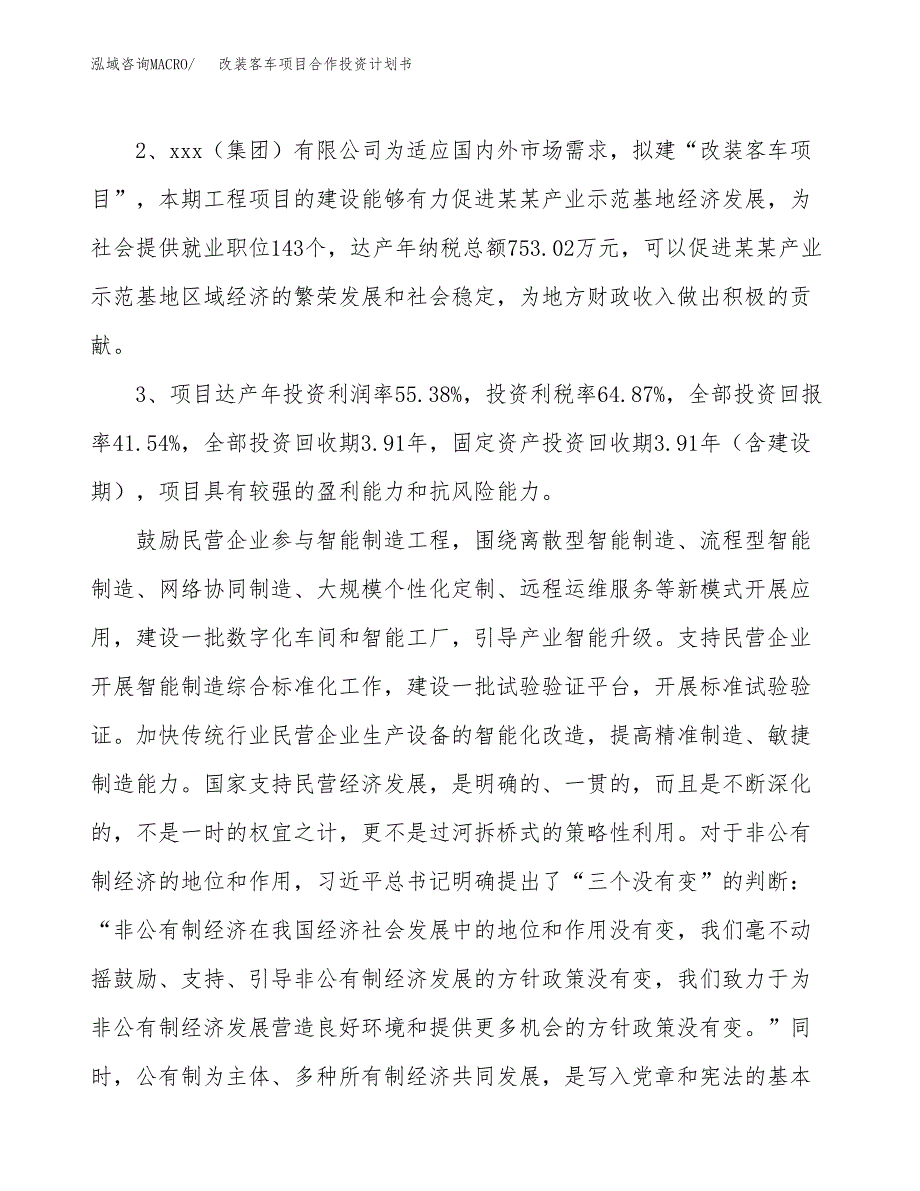 泓域咨询MACRO/ 改装客车项目合作投资计划书
2、xxx（集团）有限公司为适应国内外市场需求，拟建“改装客车项
目”，本期工程项目的建设能够有力促进某某产业示范基地经济发展，为
社会提供就业职位143个，达产年纳税总额753.02万元，可以促进某某产业
示范基地区域经济的繁荣发展和社会稳定，为地方财政收入做出积极的贡
献。
3、项目达产年投资利润率55.38%，投资利税率64.87%，全部投资回报
率41.54%，全部投资回收期3.91年，固定资产投资回收期3.91年（含建设
期），项目具有较强的盈利能力和抗风险能力。
鼓励民营企业参与智能制造工程，围绕离散型智能制造、流程型智能
制造、网络协同制造、大规模个性化定制、远程运维服务等新模式开展应
用，建设一批数字化车间和智能工厂，引导产业智能升级。支持民营企业
开展智能制造综合标准化工作，建设一批试验验证平台，开展标准试验验
证。加快传统行业民营企业生产设备的智能化改造，提高精准制造、敏捷
制造能力。国家支持民营经济发展，是明确的、一贯的，而且是不断深化
的，不是一时的权宜之计，更不是过河拆桥式的策略性利用。对于非公有
制经济的地位和作用，习近平总书记明确提出了“三个没有变”的判断：
“非公有制经济在我国经济社会发展中的地位和作用没有变，我们毫不动
摇鼓励、支持、引导非公有制经济发展的方针政策没有变，我们致力于为
非公有制经济发展营造良好环境和提供更多机会的方针政策没有变。”同
时，公有制为主体、多种所有制经济共同发展，是写入党章和宪法的基本